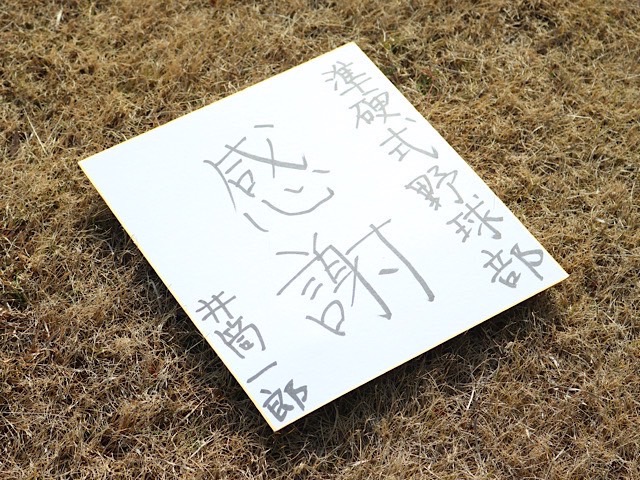 準硬式野球部
感謝
井筒一郎